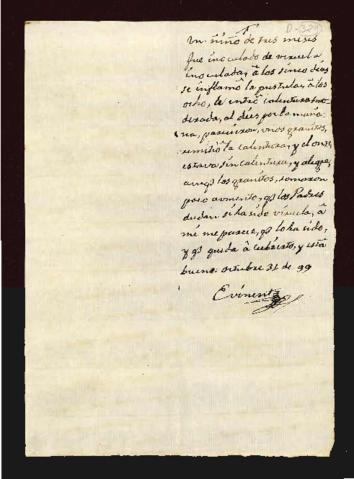 D-321
Un niño de tres meses
fue inoculado de viruela
inoculada, â los sinco dias
se inflamô la pustula, â los
ocho, le entrô calentura mo-
derada, al dies por la maña-
na, parecieron, unos granitos,
remitiô la calentura, y el onse
estava sin calentura, y alegre,
aunqs los granitos, tomaron
poco aumento, qs los Padres
dudan si ha sido viruela, â
mi me parece, qs lo ha sido,
y qs queda â cubierto, y està
bueno. octubre 31 de 99
Evinent